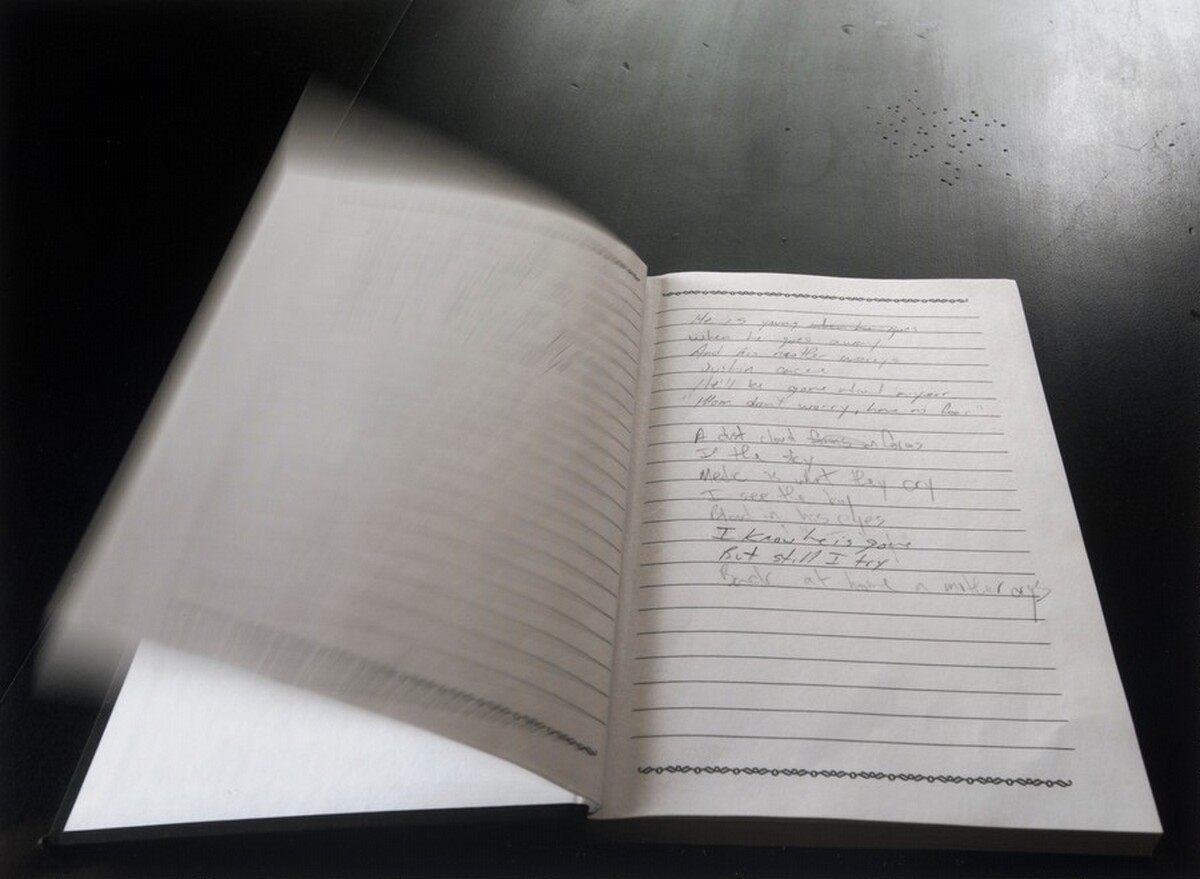 He is young when he goes
when he goes away
And his mother worrys
He'll be gone about a year
"Mom don't worry, have no fear"
A dust cloud forms
In the sky
Medic is what they cry
I see the boy
Blood in his eyes
I know he is gone
But still I try
Back at home a mother cry's